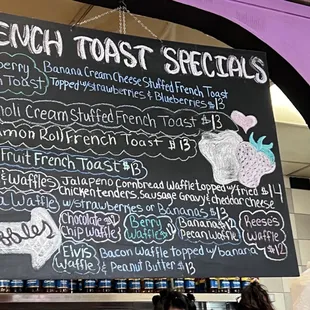 ENCH TOAST SPECIALS
berry Banana Cream Cheese Stuffed French Toast
Toast) Topped w/strawberries & Blueberries $13
noli Cream Stuffed French Toast $13
amon Roll French Toast $13
Fruit French Toast $13
& Waffles Jalapeno Cornbread Waffle topped w/fried $14
chicken tenders, Sausage Gravy & cheddar cheese
a Waffle w/strawberries or Bananas $13
bbles
Chocolate Chip Waffle
Berry Waffle
Banana Pecan Waffle
Reese's Waffle $12
Elvis Waffle Bacon Waffle topped w/banana
& Peanut Butter $13